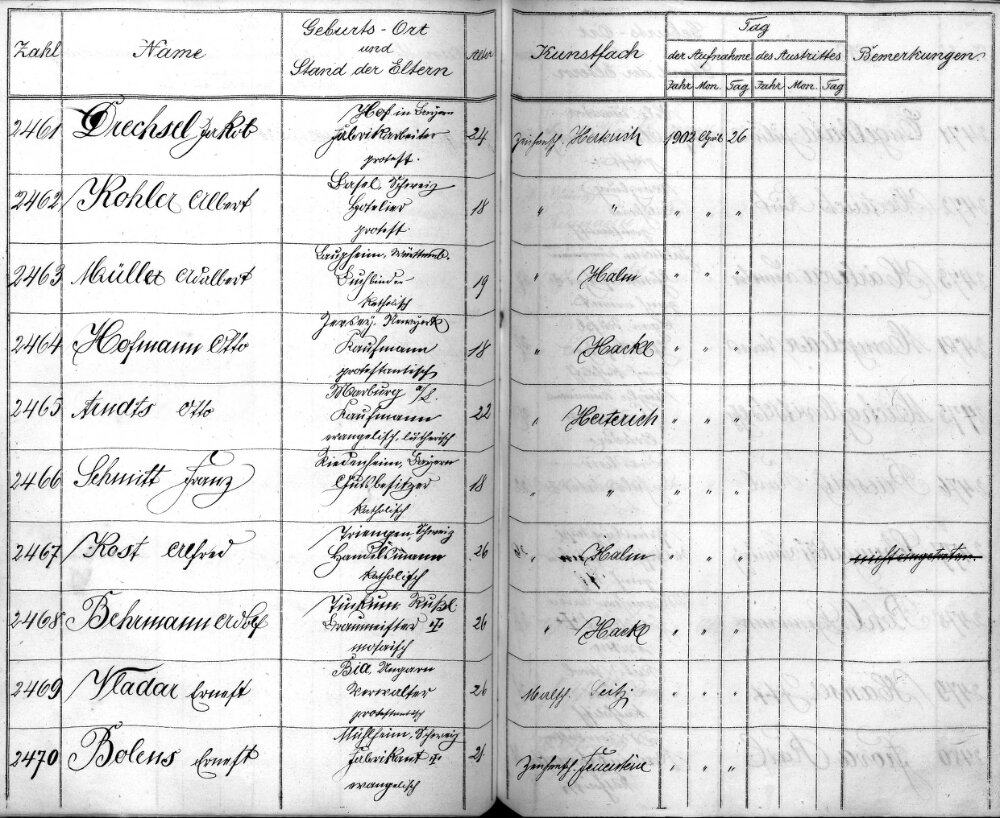 Zahl Name Geburts-Ort und Stand der Eltern Alter Kunstfach Tag der Aufnahme des Austrittes Bemerkungen
Jahr Mon. Tag Jahr Mon. Tag
2461 Drechsel Jakob Hof in Bayern 24 Zeichensch. Herterich 1902 April 26
Fabrikarbeiter
protest.
2462 Kohler Albert Basel, Schweiz 18 " " " " "
Hotelier
protest.
2463 Müller Adalbert Laupheim, Württemb. 19 " Halm " " "
Buchbinder
katholisch
2464 Hofmann Otto Jersey, Newyork 18 " Hackl " " "
Kaufmann
protestantisch
2465 Arndts Otto Marburg a/L. 22 " Herterich " " "
Kaufmann
evangelisch. lutherisch
2466 Schmitt Franz Riedenheim, Bayern 18 " " " " "
Gutsbesitzer
katholisch
2467 Kost Alfred Triengen, Schweiz 26 " Halm " " " nicht eingetreten
Handelsmann
katholisch
2468 Behrmann Adolf Tuckum Rußl. 26 " Hackl " " "
Braumeister
mosaisch
2469 Vladar Ernest Bia, Ungarn 26 Malsch. Seitz " " "
Verwalter
protestantisch
2470 Bolens Ernest Mühlheim, Schweiz 21 Zeichensch. Feuerstein " " "
Fabrikant
evangelisch